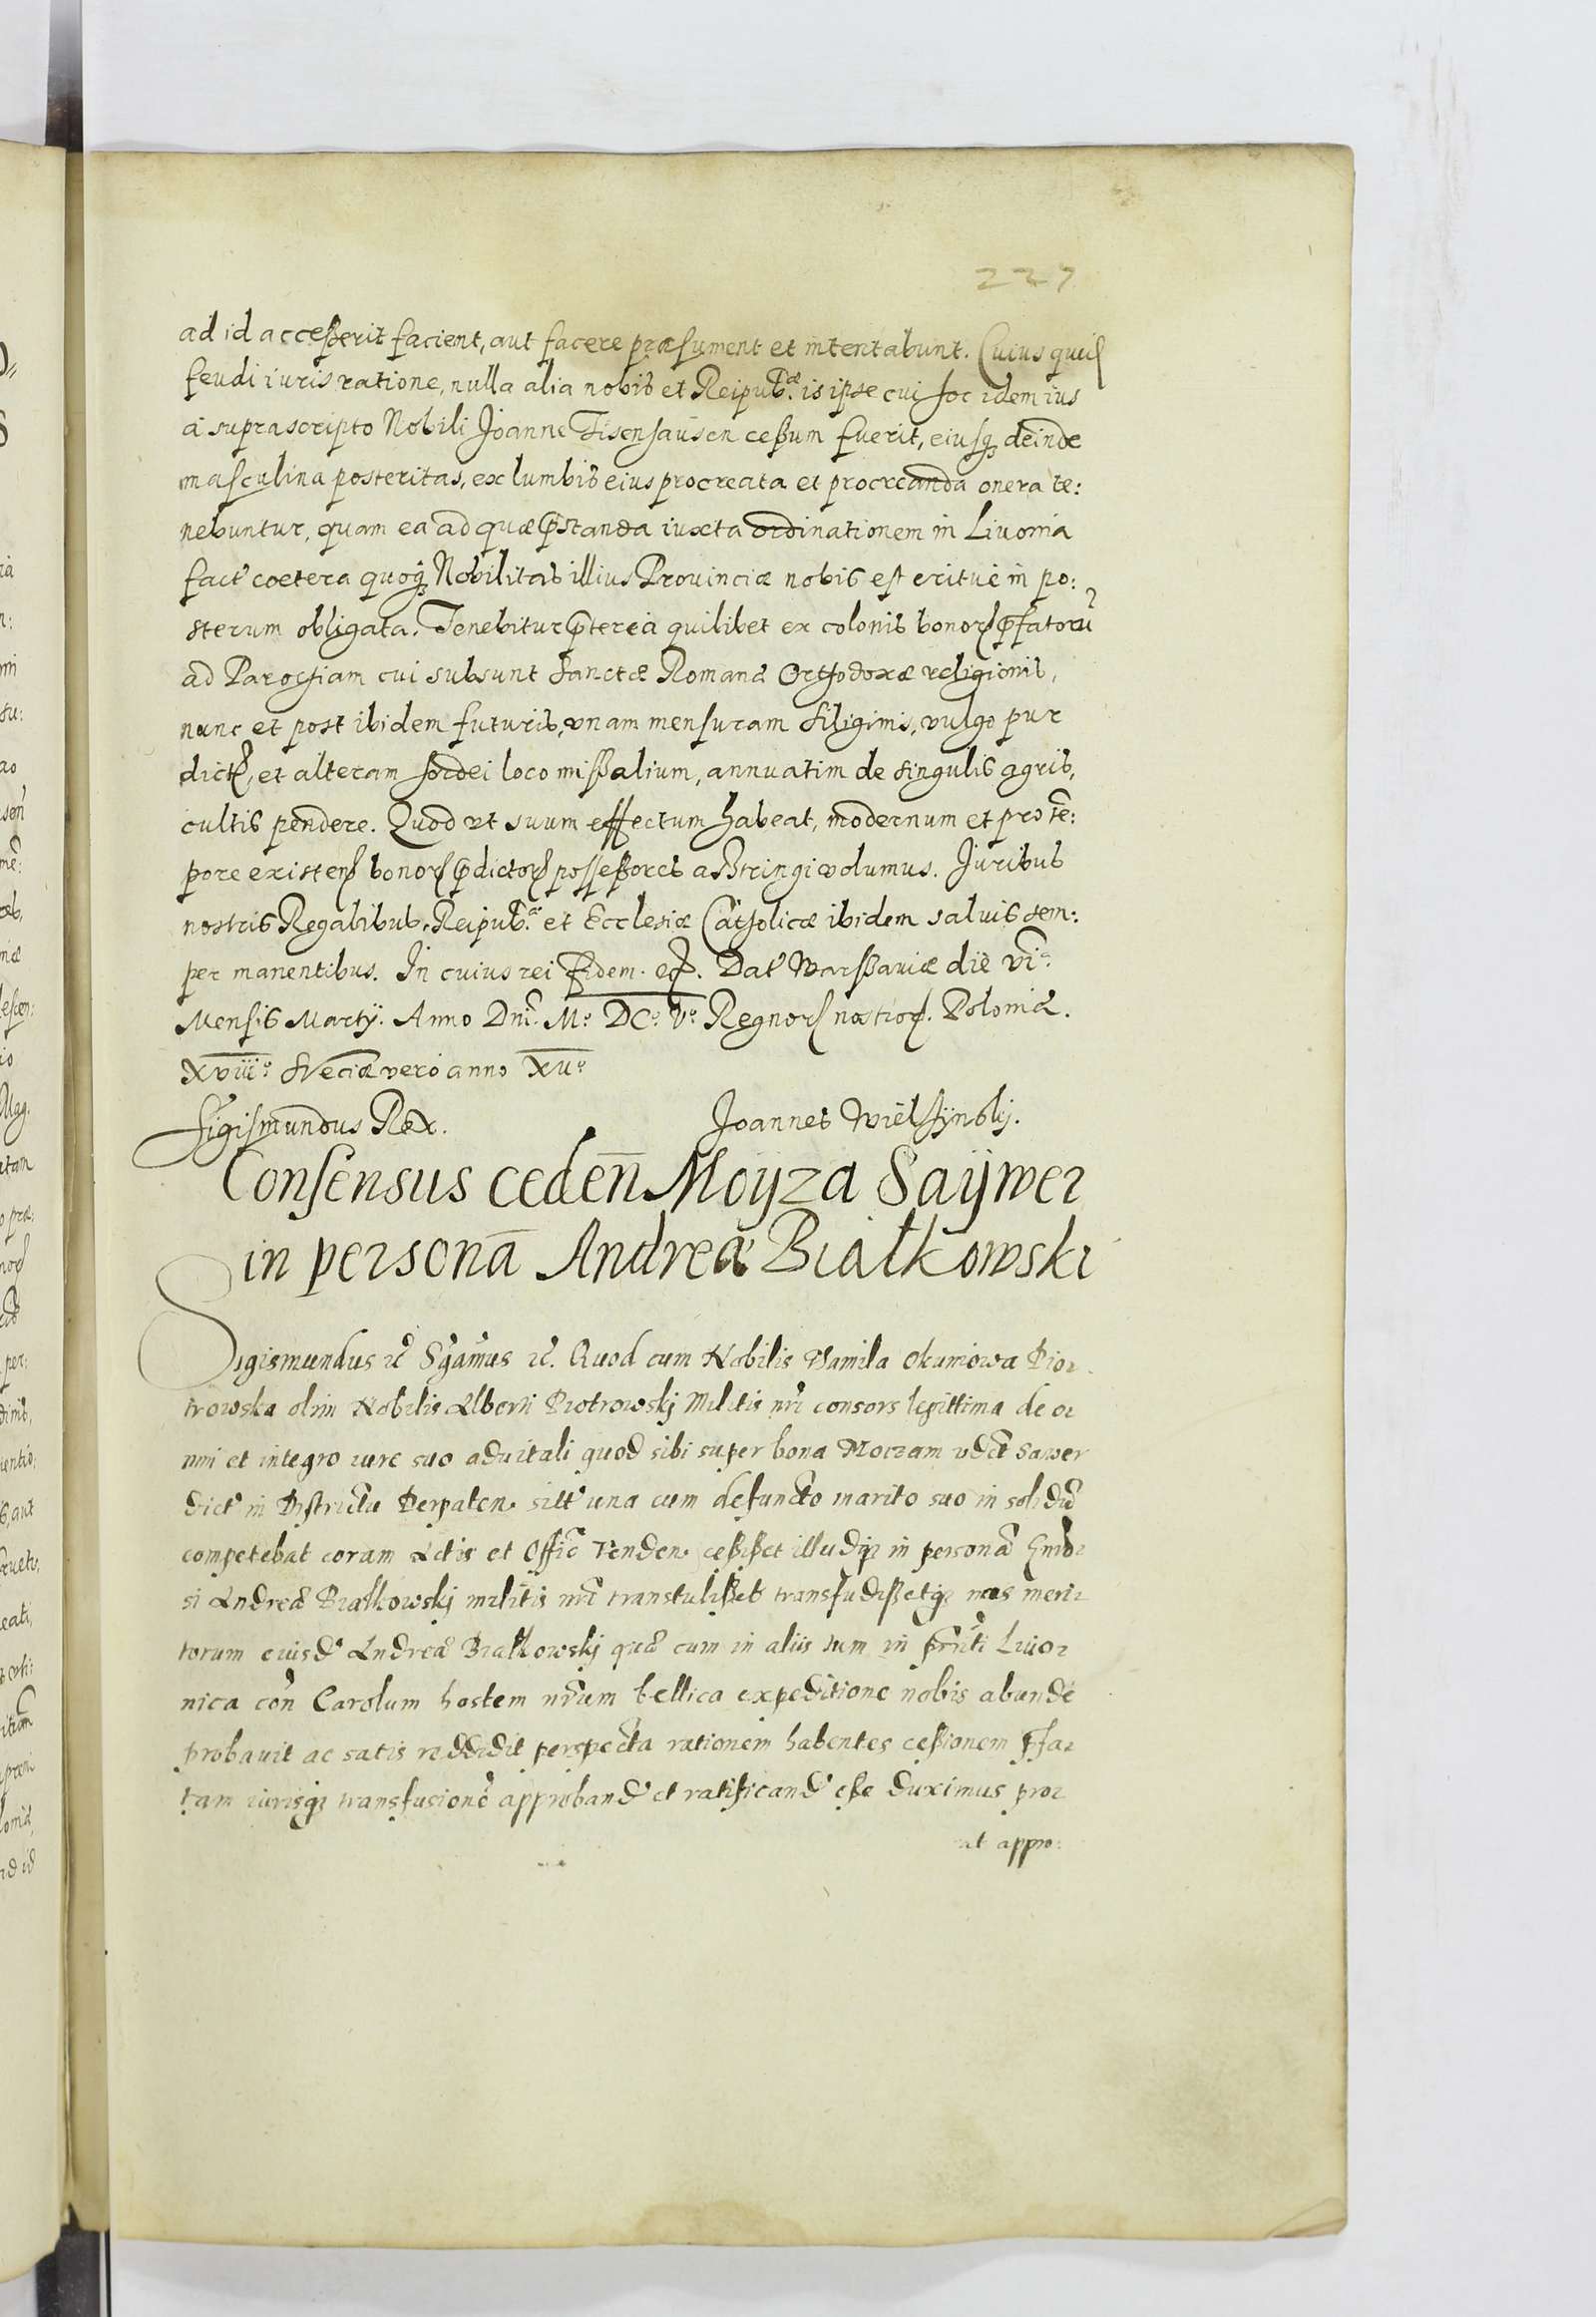 227
ad id acceßerit facient, aut facere præsument et intentabunt. Cuius quid
feudi iuris ratione, nulla alia nobis et Reipub.æ is ipse cui hoc idem ius
a suprascripto Nobili Joanne Tisenhausen ceßum fuerit, eiusq deinde
masculina posteritas, ex lumbis eius procreata et procreanda onera te:
nebuntur, quam ea ad quæ pstanda iuxta ordinationem in Livonia
fact' coetera quoq Nobilitas illius Provinciæ nobis est eritue in po:
sterum obligata. Tenebitur pterea quilibet ex colonis bonor pfatorū
ad Parochiam cui subsunt Sanctæ Romanæ Orthodoxæ religionis,
nunc et post ibidem futuris, vnam mensuram siliginis, vulgo pur
dict, et alteram hordei loco mißalium, annuatim de singulis agris,
cultis pendere. Quod vt suum effectum habeat, modernum et pro tē:
pore existen bonor pdictor posseßores astringi volumus. Juribus
nostris Regalibus, Reipub.æ et Ecclesiæ Catholicæ ibidem saluis sem:
per manentibus. In cuius rei fidem. etc. Dat' Warßaviæ die VIa
Mensis Martij. Anno Dni. Mo DCo Vo Regnor nostror. Poloniæ.
XVIIIo Sveciæ vero anno XIIo
Sigismundus Rex. Joannes Wielżynskij.
Consensus cedeñ Moyza Saywer
in personā Andreæ Białkowski
Sigismundus etc Sgamus etc. Quod cum Nobilis Kamila Okuniowa Pio
trowska olim Nobilis Alberti Piotrowskj Militis nri consors legittima de o
mni et integro iure suo aduitali quod sibi super bona Moizam vdct Sawer
dict' in Districtu Derpaten. sitt' una cum defuncto marito suo in solidū
competebat coram Actis et Offic Venden. ceßißet illudq in personā Genero
si Andreæ Białkowskj militis nri transtulißet transfudißetq nos meri
torum eiusd' Andreæ Białkowskj quæ cum in aliis tum in pnti Livo
nica con Carolum hostem nrum bellica expeditione nobis abunde
probauit ac satis reddidit perspecta rationem habentes ceßionem pfa
tam iurisq transfusionē approband' et ratificand' eße duximus pro
ut appro: